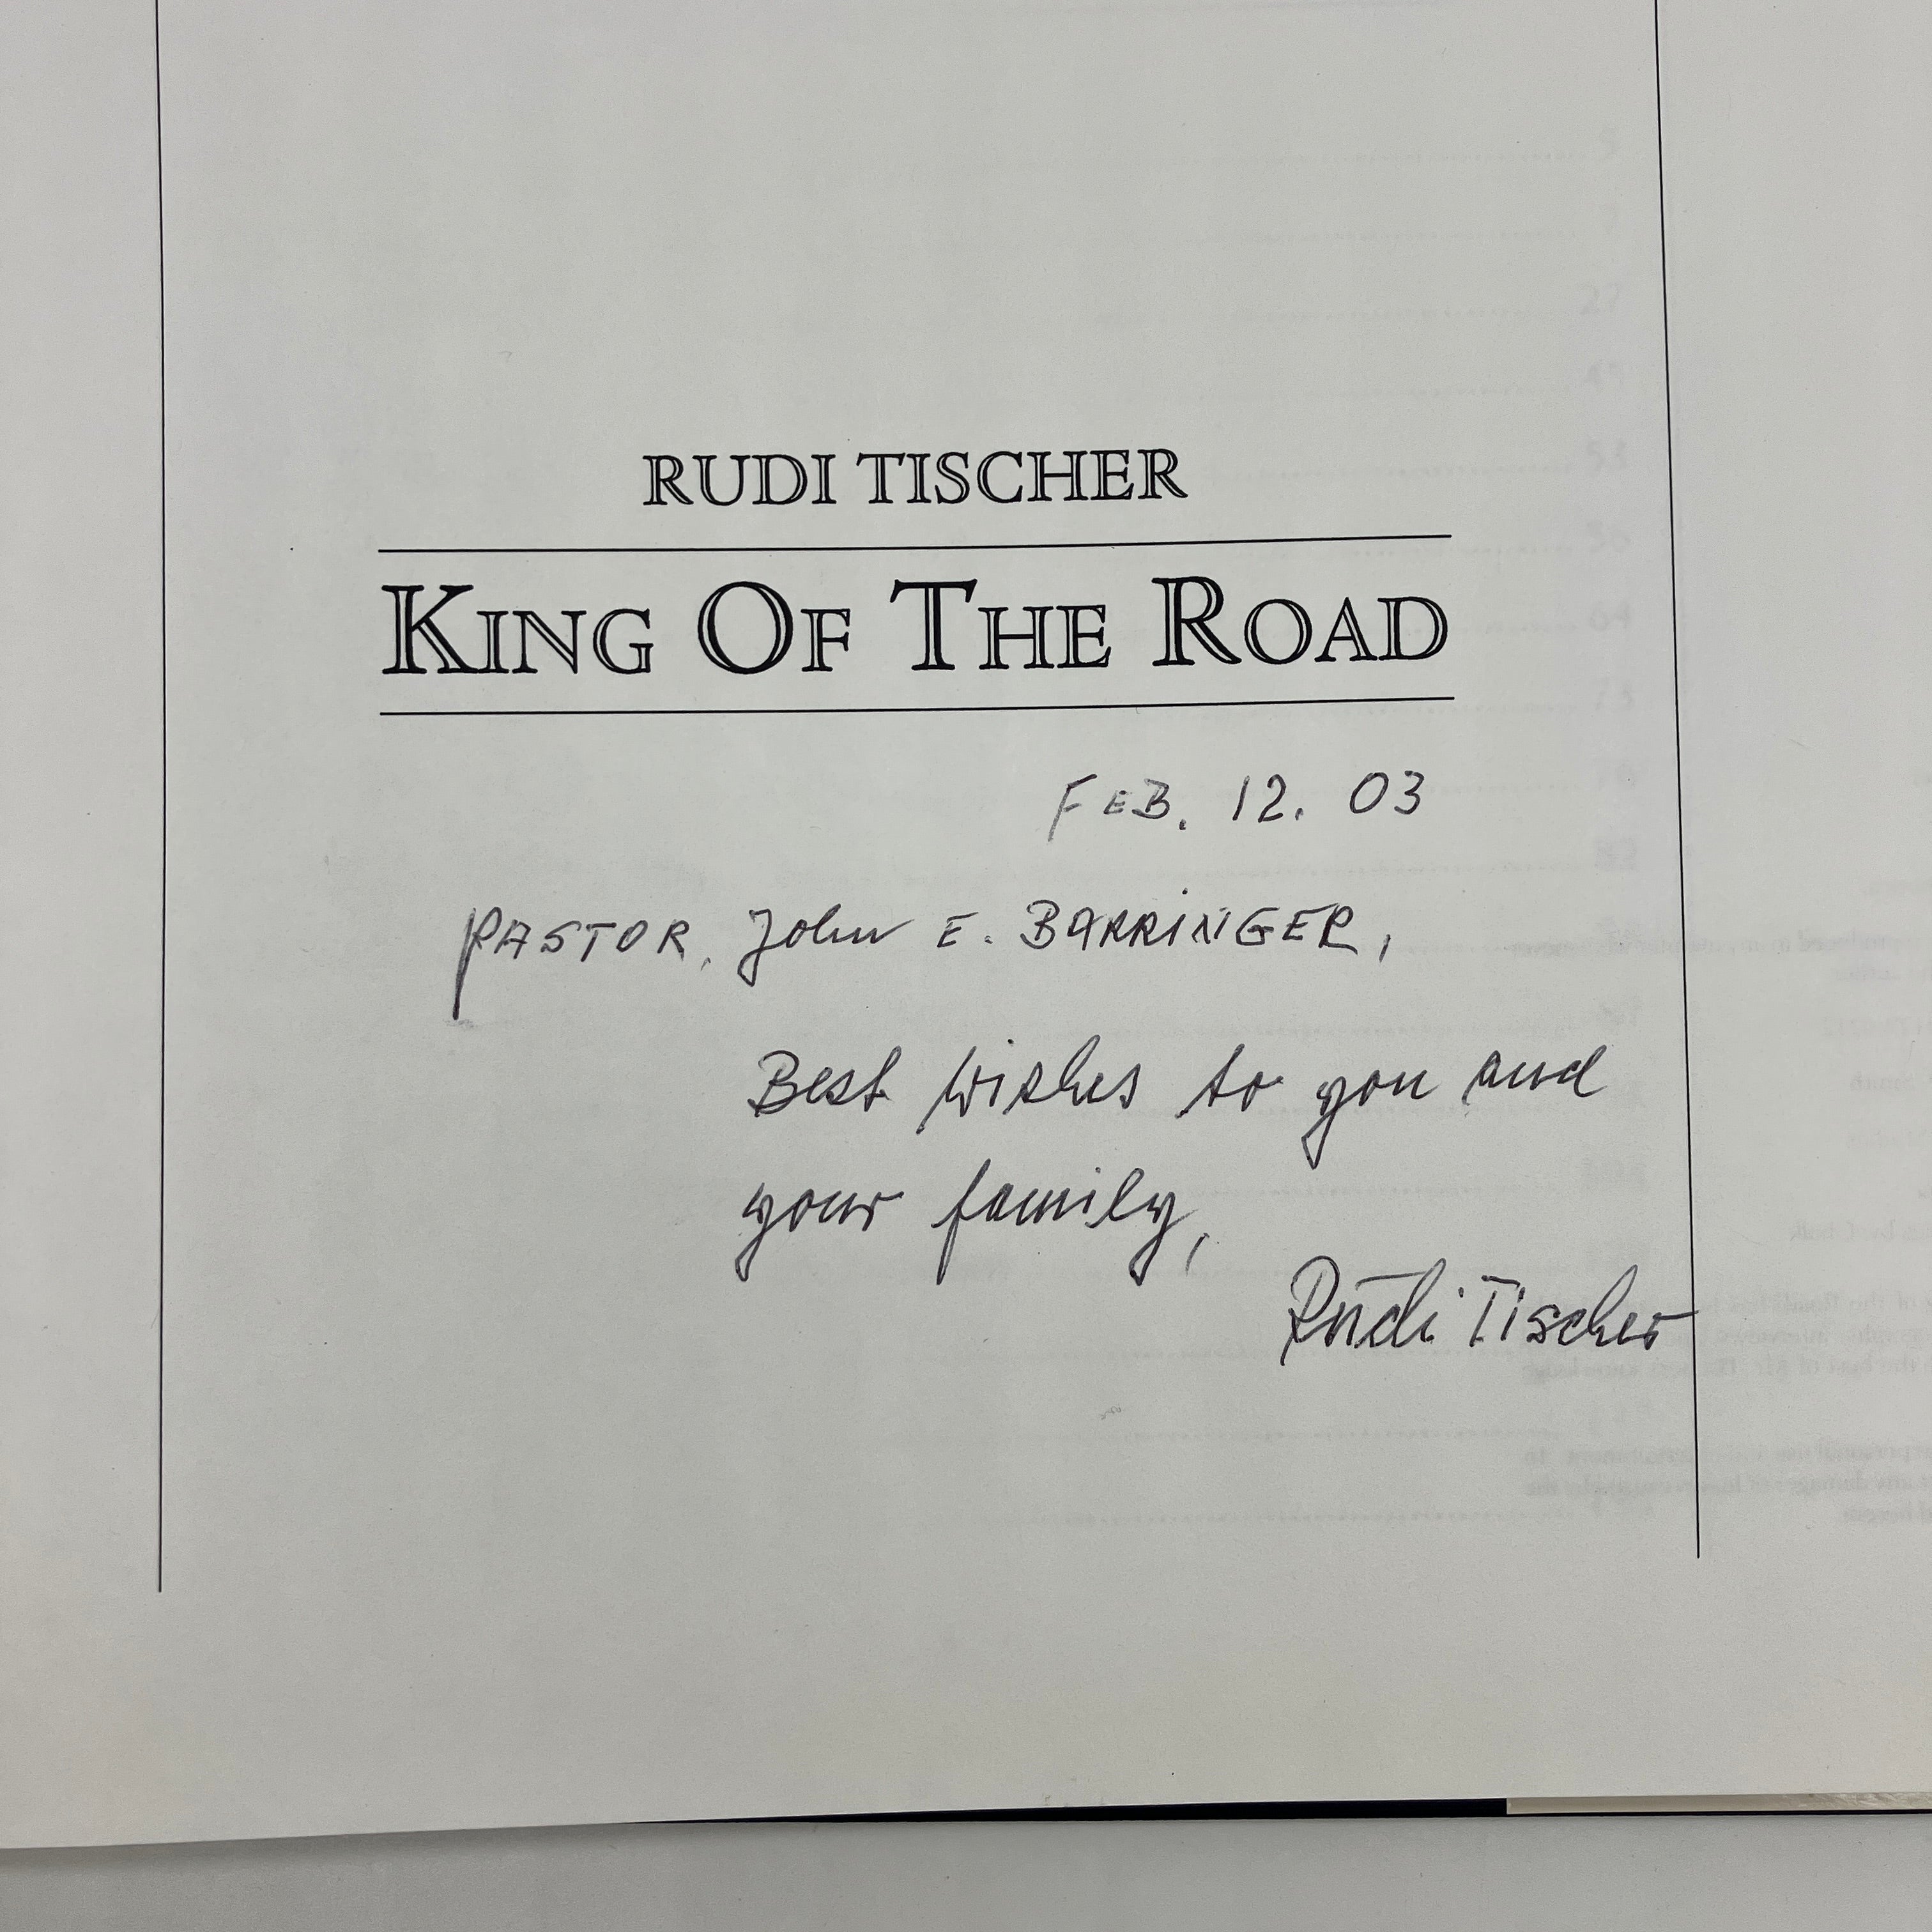 RUDI TISCHER
KING OF THE ROAD
FEB. 12. 03
PASTOR, John E. BARRINGER,
Best Wishes to you and
your family,
Rudi Tischer